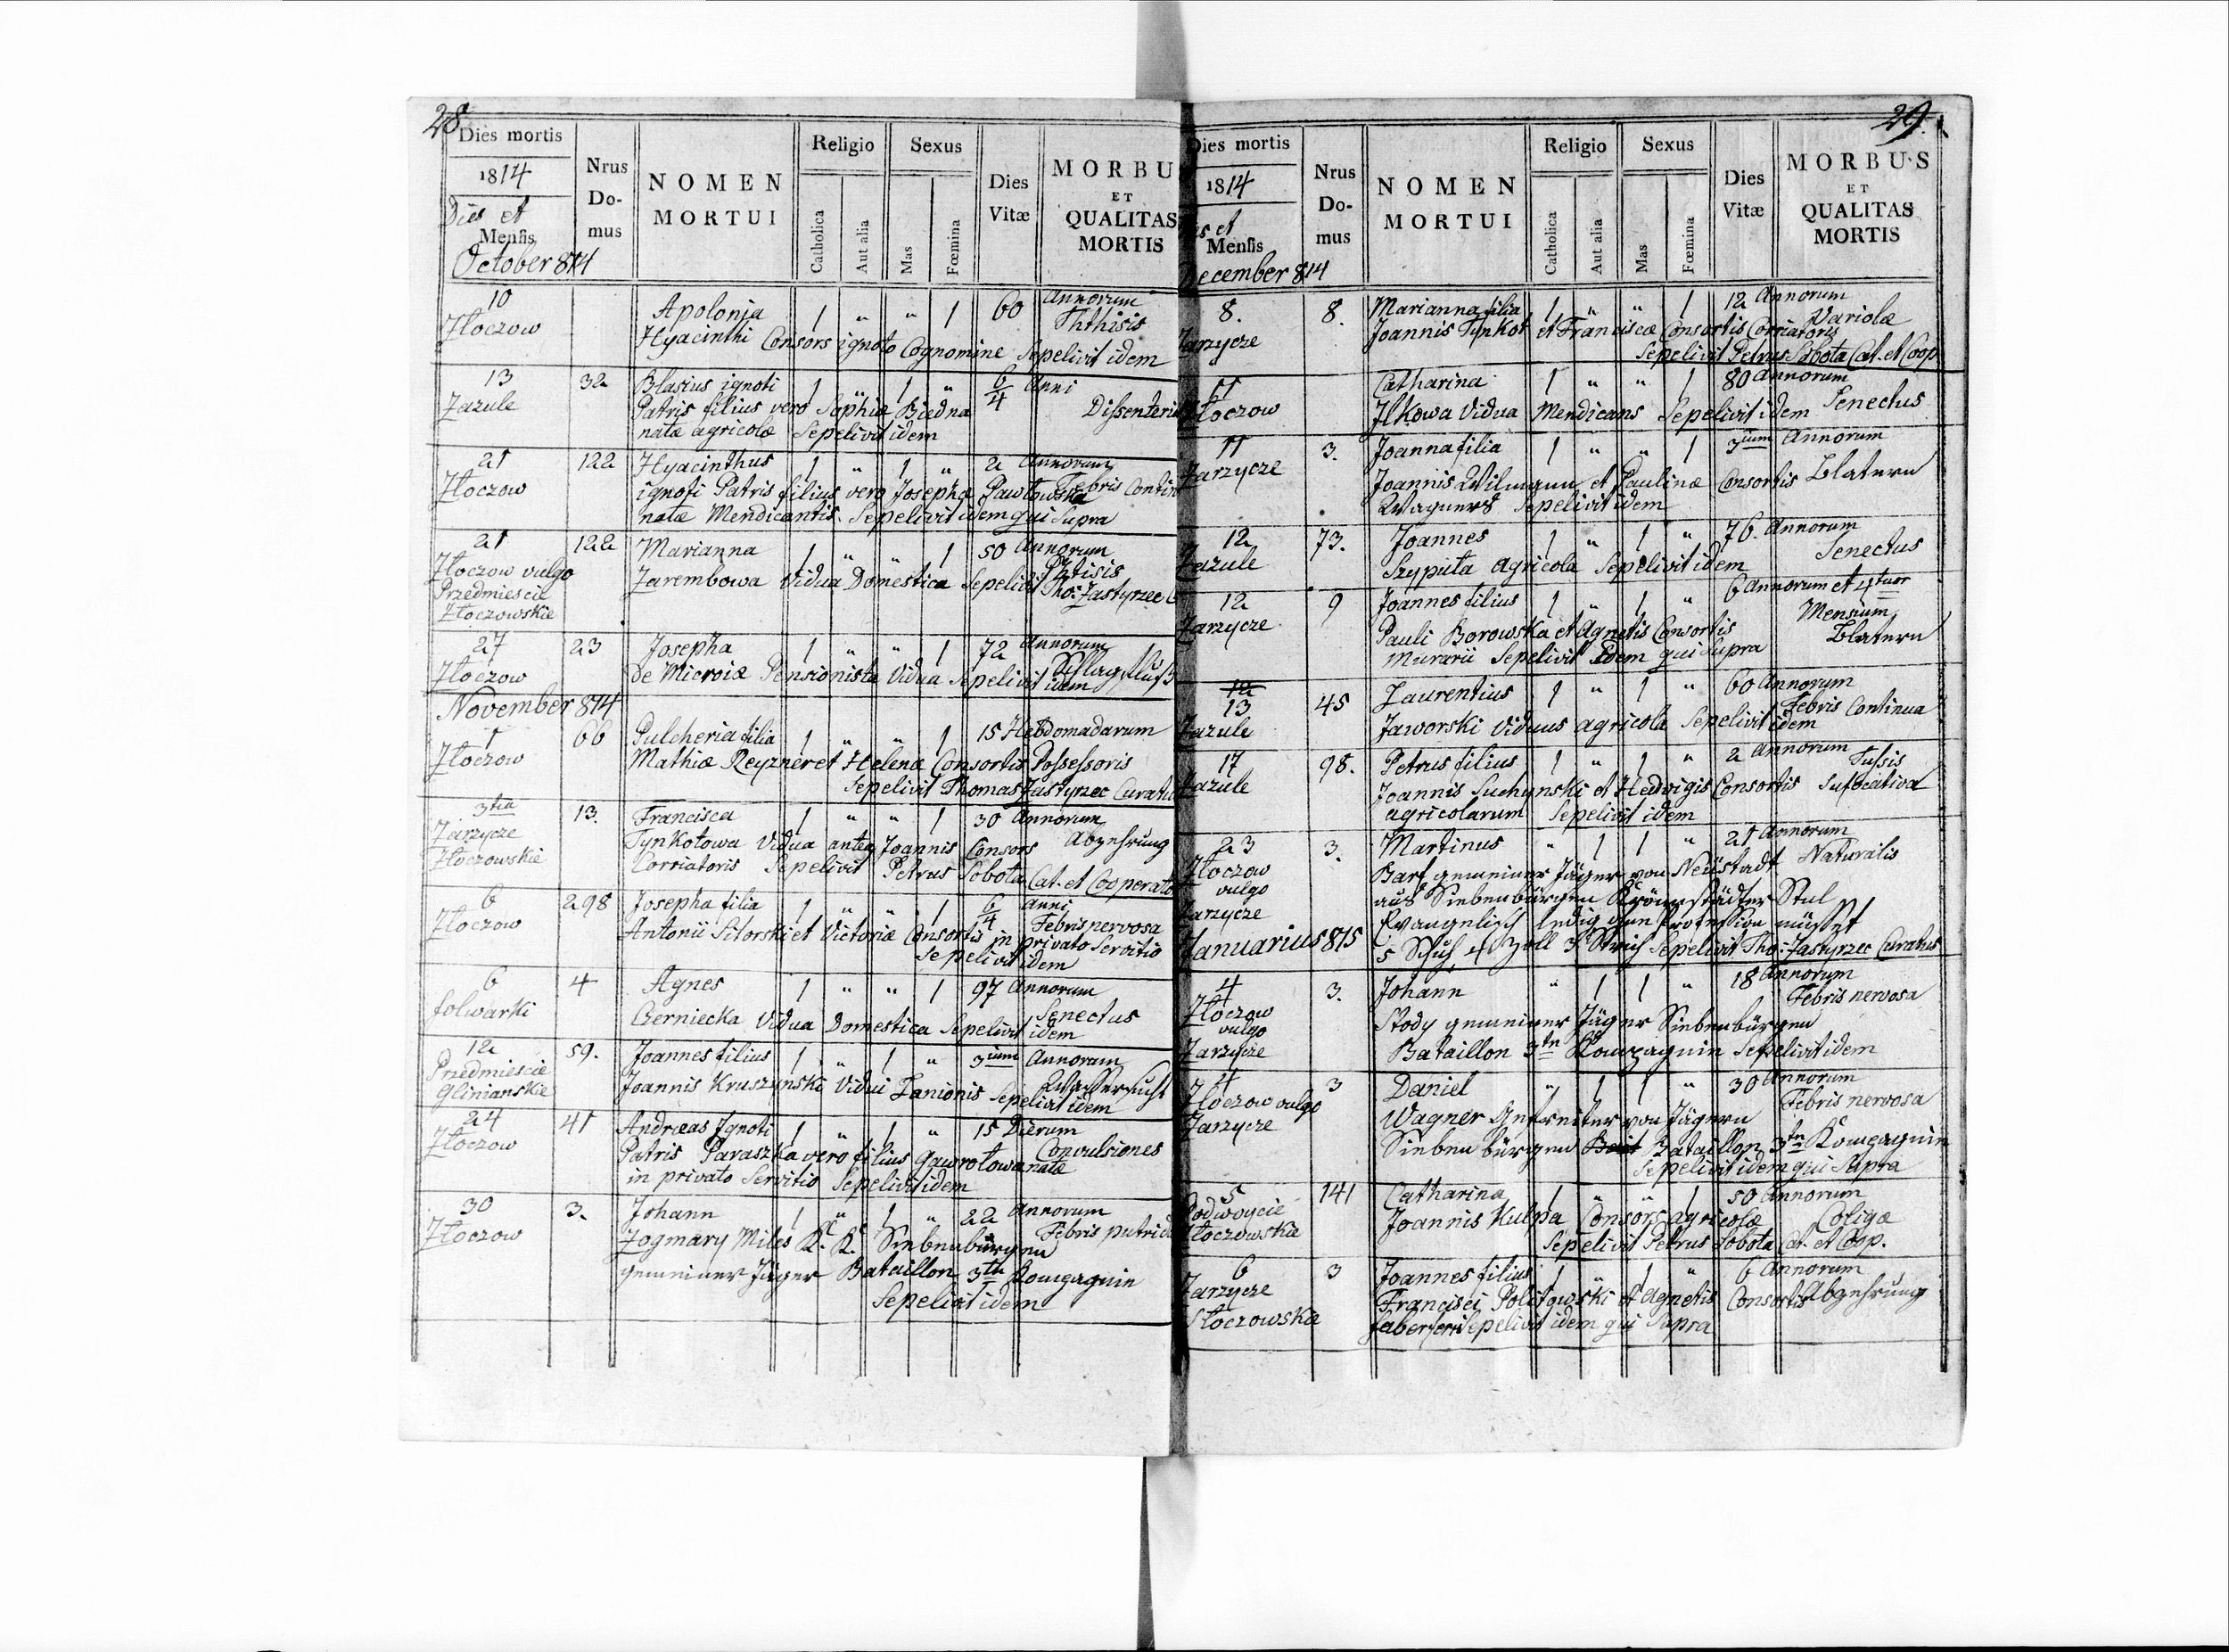 28
Dies mortis
1814
Dies et
Mensis
October 814
Nrus
Do-
mus
NOMEN
MORTUI
Religio
Catholica
Aut alia
Sexus
Mas
Fœmina
Dies
Vitæ
MORBU
ET
QUALITAS
MORTIS
10 Apolonja 1 " " 1 60 Annorum
Złoczow Hyacinthi Consors ignoto Cognomine Sepelivit idem Phthisis
13 32 Blasius ignoti 1 " 1 " 6/4 Anni
Zazule Patris filius vero Sophiæ Biedna Dissenteria
natæ agricolæ Sepelivit idem
21 122 Hyacinthus 1 " 1 " 2 Annorum
Złoczow ignoti Patris filius vero Josephæ Pawłowska Febris Contin
natæ Mendicantis Sepelivit idem qui Supra
21 122 Marianna 1 " " 1 50 Annorum
Złoczow vulgo Zarembowa Vidua Domestica Sepelivit Tho: Zastyrzec Ptisis
Przedmiescie
Złoczowskie
27 23 Josepha 1 " " 1 72 Annorum
Złoczow De Pensionista Vidua Sepelivit idem Schlagfluß
November 814
1 66 Pulcheria filia 1 " " 1 15 Hebdomadarum
Złoczow Mathiæ Reyzner et Helenæ Consortis Possessoris
Sepelivit Thomas Zastyrzec Curatus
3tia 13. Francisca 1 " " 1 30 Annorum
Zarzycze Tynkotowa Vidua antea Joannis Consors Abzehrung
Złoczowskie Corriatoris Sepelivit Petrus Sobota Cat. et Cooperato
6 298 Josepha filia 1 " " 1 6/4 Anni
Złoczow Antonii et Victoriæ Consortis in privato Servitio Febris nervosa
Sepelivit idem
6 4 Agnes 1 " " 1 97 Annorum
folwarki Czerniecka Vidua Domestica Sepelivit idem Senectus
12 59. Joannes filius 1 " 1 " 3ium Annorum
Przedmiescie Joannis Kruszynski Vidui Lanionis Sepelivit idem Wassersucht
Glinianskie
24 41 Andreas Ignoti 1 " 1 " 15 Dierum
Złoczow Patris Paraszka vero filius Gawrotowa natæ Convulsiones
in privato Servitio Sepelivit idem
30 3. Johann 1 " 1 " 22 Annorum
Złoczow Zogmary Miles K. K. Siebenbürgen Febris putrida
gemeiner Jäger Bataillon 3tn Kompagnin
Sepelivit idem
29.
Dies mortis
1814
et
Mensis
December 814
Nrus
Do-
mus
NOMEN
MORTUI
Religio
Catholica
Aut alia
Sexus
Mas
Fœmina
Dies
Vitæ
MORBUS
ET
QUALITAS
MORTIS
8. 8. Marianna filia 1 " " 1 12 Annorum
Zarzycze Joannis Tynkot et Franciscæ Consortis Corriatoris Variolæ
Sepelivit Petrus Sobota Cat. et Coop
11 Catharina 1 " " 1 80 Annorum
Złoczow Ilkowa Vidua Mendicans Sepelivit idem Senectus
11 3. Joanna filia 1 " " 1 3ium Annorum
Zarzycze Joannis et Paulinæ Consortis Blatern
Wagners Sepelivit idem
12 73. Joannes 1 " 1 " 76. Annorum
Zazule Szyputa Agricola Sepelivit idem Senectus
12 9 Joannes filius 1 " 1 " 6 Annorum et 4tuor
Zarzycze Pauli Borowska et Agnetis Consortis Mensium
Murarii Sepelivit Idem qui Supra Blatern
13 45 Laurentius 1 " 1 " 60 Annorum
Zazule Jaworski Viduus agricola Sepelivit idem Febris Continua
17 98. Petrus filius 1 " 1 " 2 Annorum
Zazule Joannis Suchynski et Hedvigis Consortis Tussis Sufocativa
agricolarum Sepelivit idem
23 3. Martinus " 1 1 " 21 Annorum
Złoczow Barf gemeiner Jäger von Neüstadt Naturalis
vulgo aus Siebenbürgen Kronstädter Stul
Zarzycze Evangelisch ledig ohne Profession müsset
Januarius 815 5 Schuh 4 Zoll 3 Strich Sepelivit Tho: Zastyrzec Curatus
4 3. Johann " 1 1 " 18 Annorum
Złoczow Stody gemeiner Jäger Siebenbürgen Febris nervosa
vulgo
Zarzycze Bataillon 3tn Kompagnin Sepelivit idem
4 3 Daniel " 1 1 " 30 Annorum
Złoczow vulgo Wagner Gefreiter von Jägern Febris nervosa
Zarzycze Siebenbürgen Bataillon 3tn Kompagnin
Sepelivit idem qui Supra
5 141 Catharina 1 " " 1 50 Annorum
Podwoycie Joannis Kulpa Consors agricolæ Coligæ
Złoczowskie Sepelivit Petrus Sobota Cat. et Coop.
6 3 Joannes filius 1 " 1 " 6 Annorum
Zarzycze Francisci Politowski et Agnetis Consortis Abzehrung
Złoczowskie faber ferri Sepelivit idem qui Supra